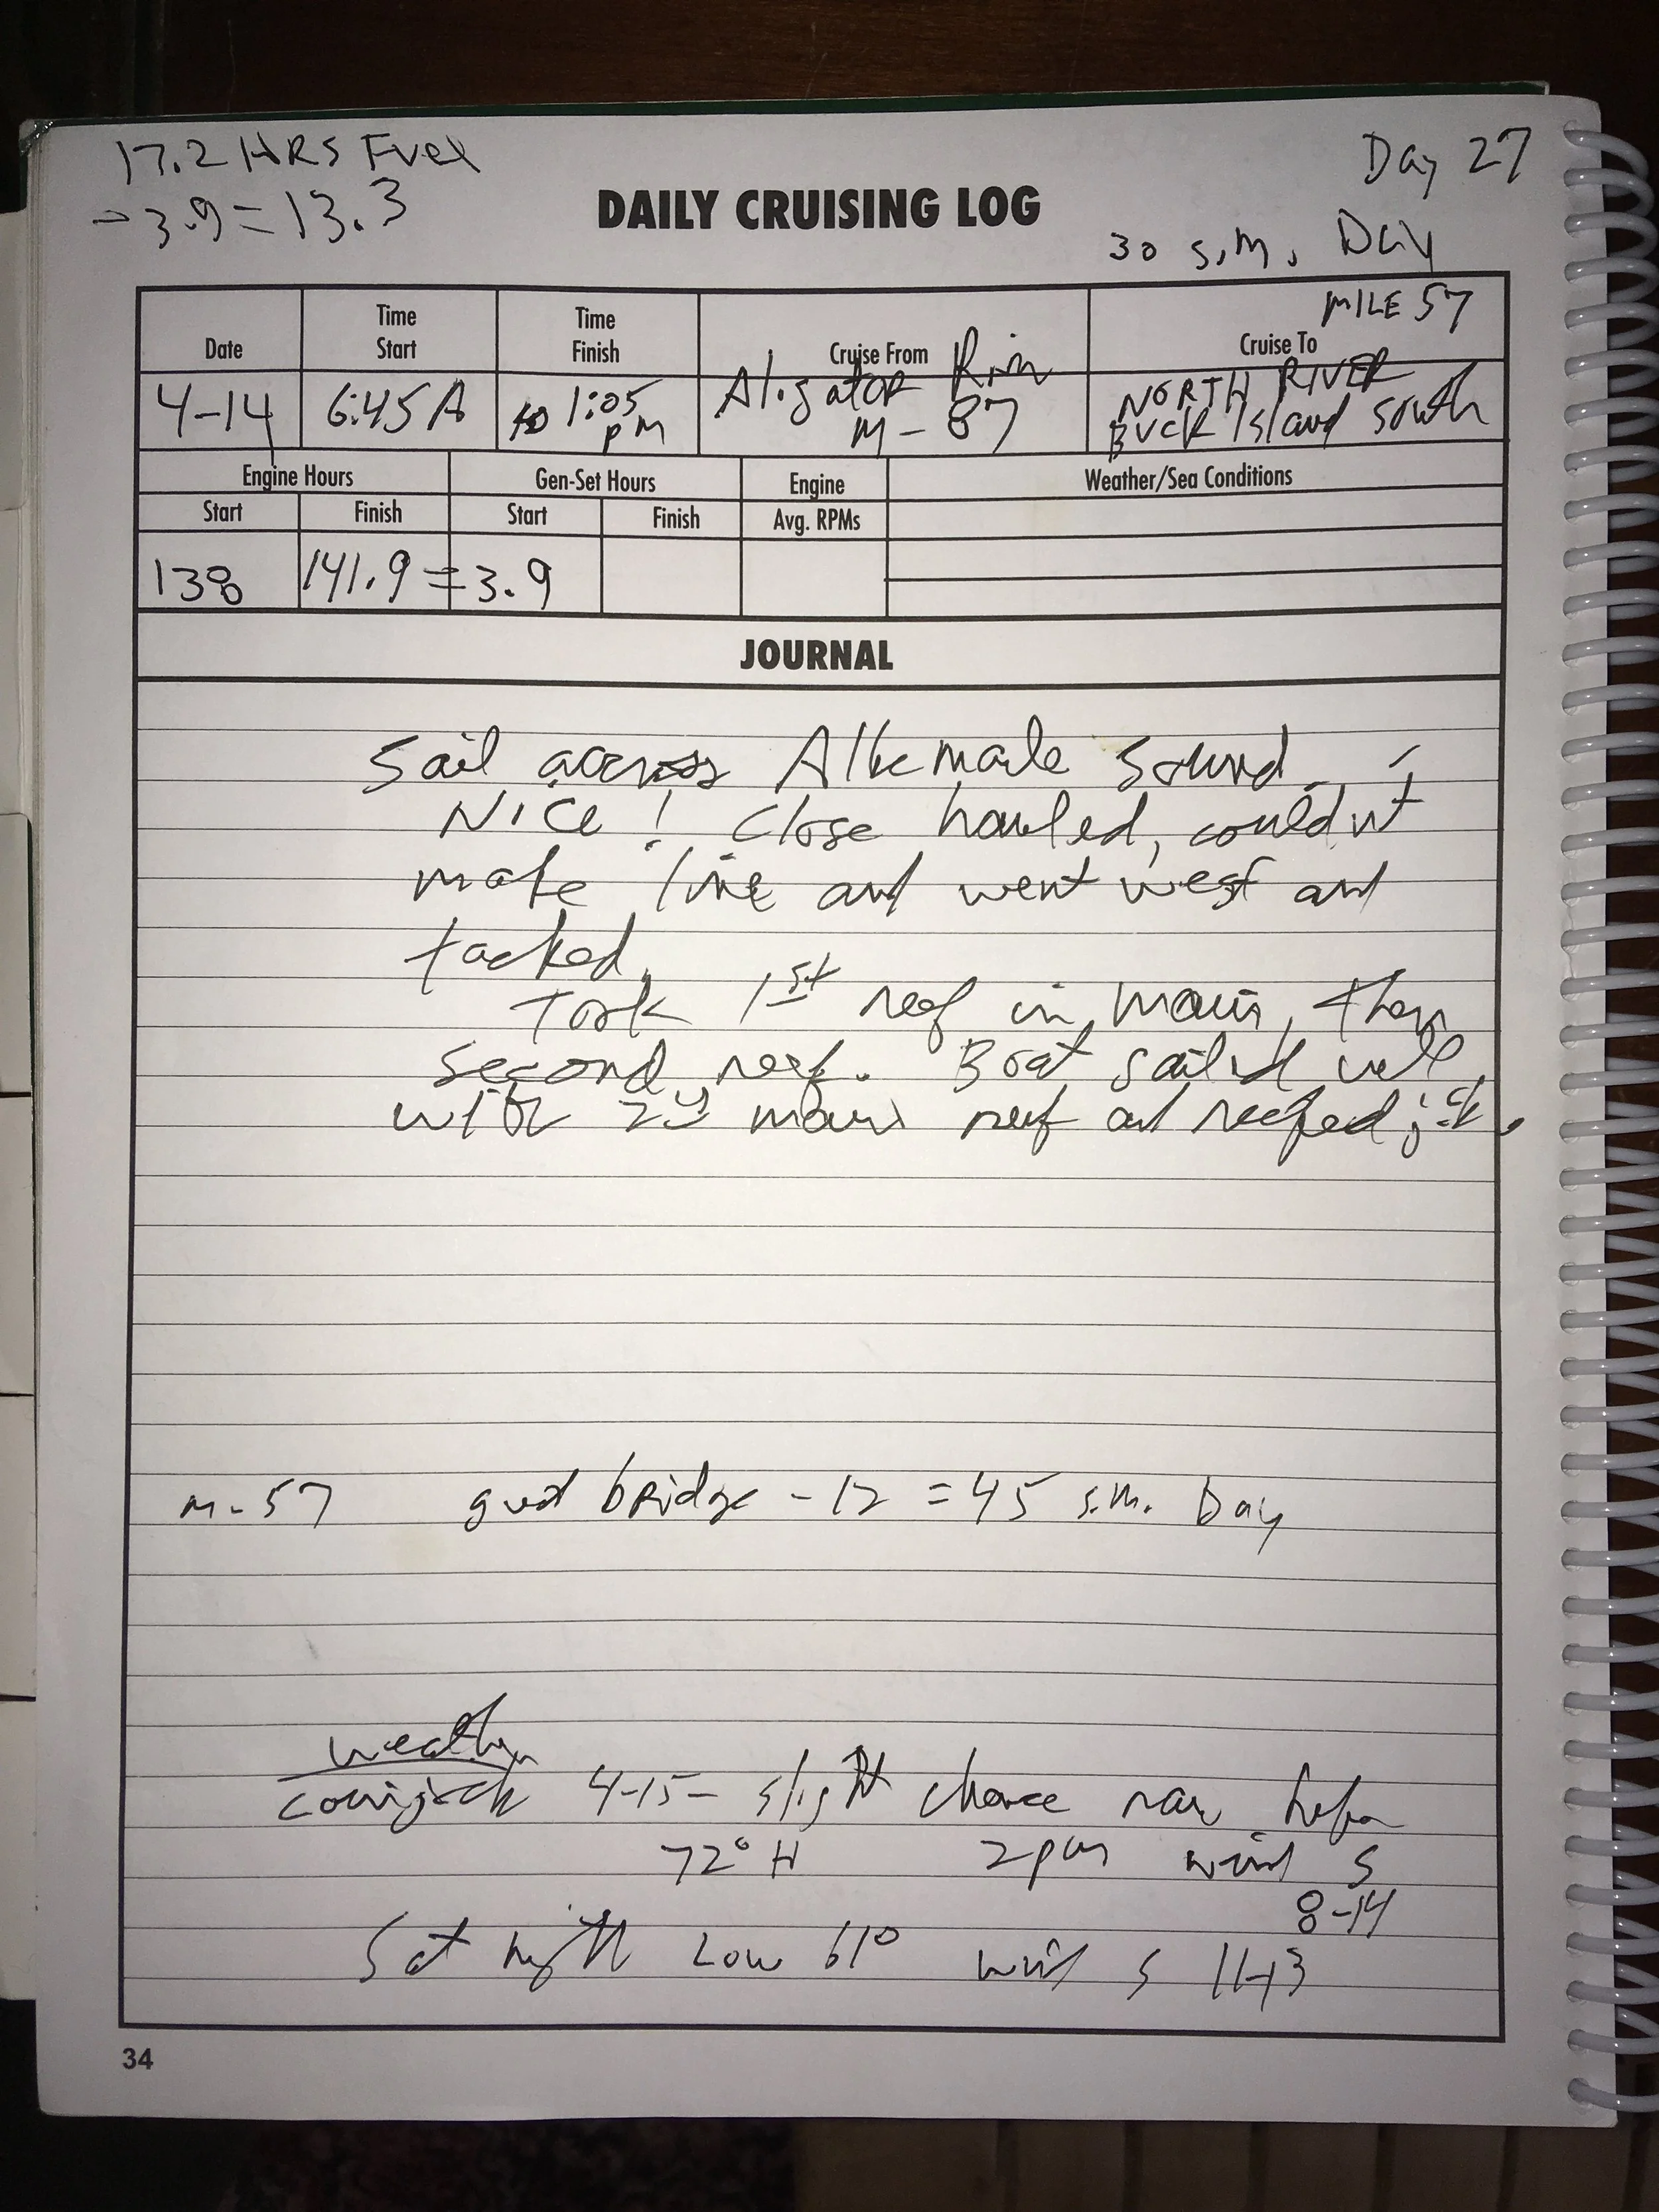 17.2 HRS Fuel
Day 27
- 3.9 = 13.3
DAILY CRUISING LOG
30 s.m. Day
MILE 57
Date
Time Start
Time Finish
Cruise From
Cruise To
4-14
6:45 A
to 1:05 pm
Aligator River M-87
NORTH RIVER Buck Island South
Engine Hours
Gen-Set Hours
Engine
Weather/Sea Conditions
Start
Finish
Start
Finish
Avg. RPMs
138
141.9 = 3.9
JOURNAL
Sail across Albemarle Sound -
Nice! Close hauled, couldnt
make line and went west and
tacked.
Took 1st reef in main, then
second reef. Boat sailed well
with 2nd main reef and reefed jib.
m-57 great bridge - 12 = 45 s.m. Day
weather
4-15- slight chance rain before
72° H 2pm wind S
8-14
Sat night Low 61° wind S 11-13
34